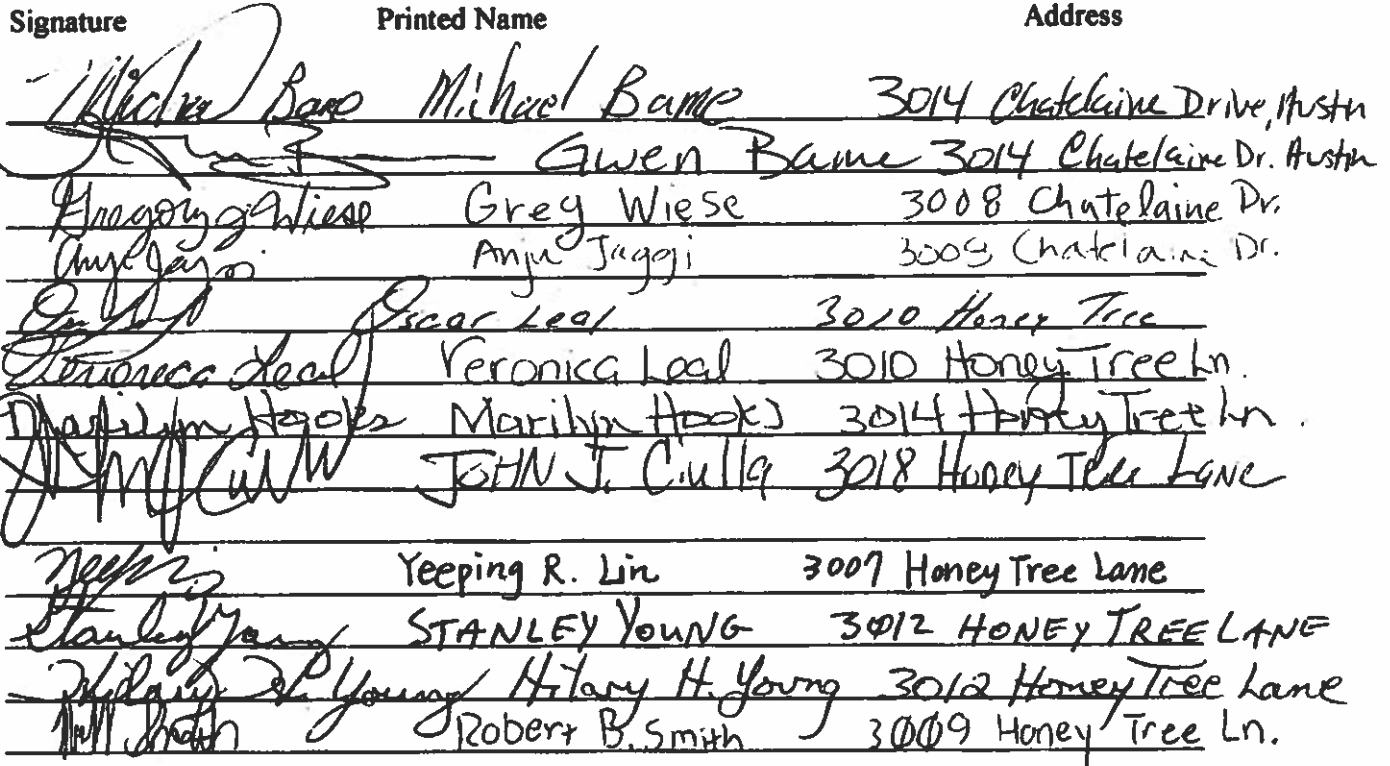 Signature Printed Name Address
Michael Bame Michael Bame 3014 Chatelaine Drive, Austin
Gwen Bame 3014 Chatelaine Dr. Austin
Gregory J Wiese Greg Wiese 3008 Chatelaine Dr.
Anju Jaggi Anju Jaggi Chatelaine Dr.
Oscar Leal 3010 Honey Tree
Veronica Leal Veronica Leal 3010 Honey Tree Ln.
Marilyn Hooks Marilyn Hooks 3014 Honey Tree Ln.
JOHN J. Ciulla 3018 Honey Tree Lane
Yeeping R. Lin 3007 Honey Tree Lane
Stanley Young STANLEY YOUNG 3012 HONEY TREE LANE
Hilary H. Young Hilary H. Young 3012 Honey Tree Lane
Smith Robert B. Smith 3009 Honey Tree Ln.